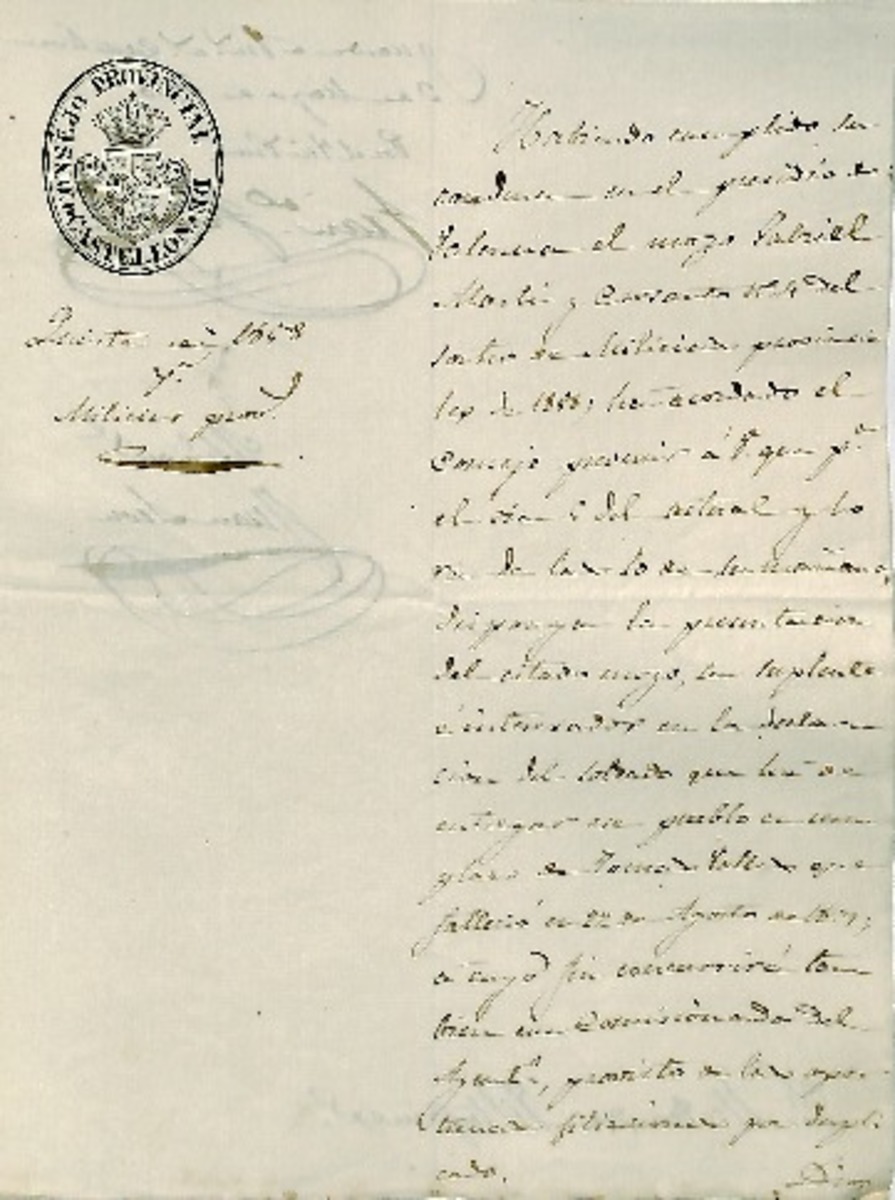 CONSEJO PROVINCIAL DE CASTELLON
Quinta de 1858
pª
Milicias provs.
Habiendo cumplido su
condena en el presidio de
Valencia el mozo Gabriel
Martí y nº 4º del
sorteo de Milicias provincia
les de 1858; ha acordado el
Consejo prevenir á V. que pª
el dia 5 del actual y ho
ra de las 10 de su mañana,
disponga la presentacion
del citado mozo, su suplente
é interesados en la declara
cion del soldado que ha de
entregar ese pueblo en reem
plazo de Tomás que
falleció en 22 de Agosto de
á cuyo fin concurrirá tam
bien un Comisionado del
Ayuntº, provisto de las opor
tunas filiaciones por dupli
cado.
Dios